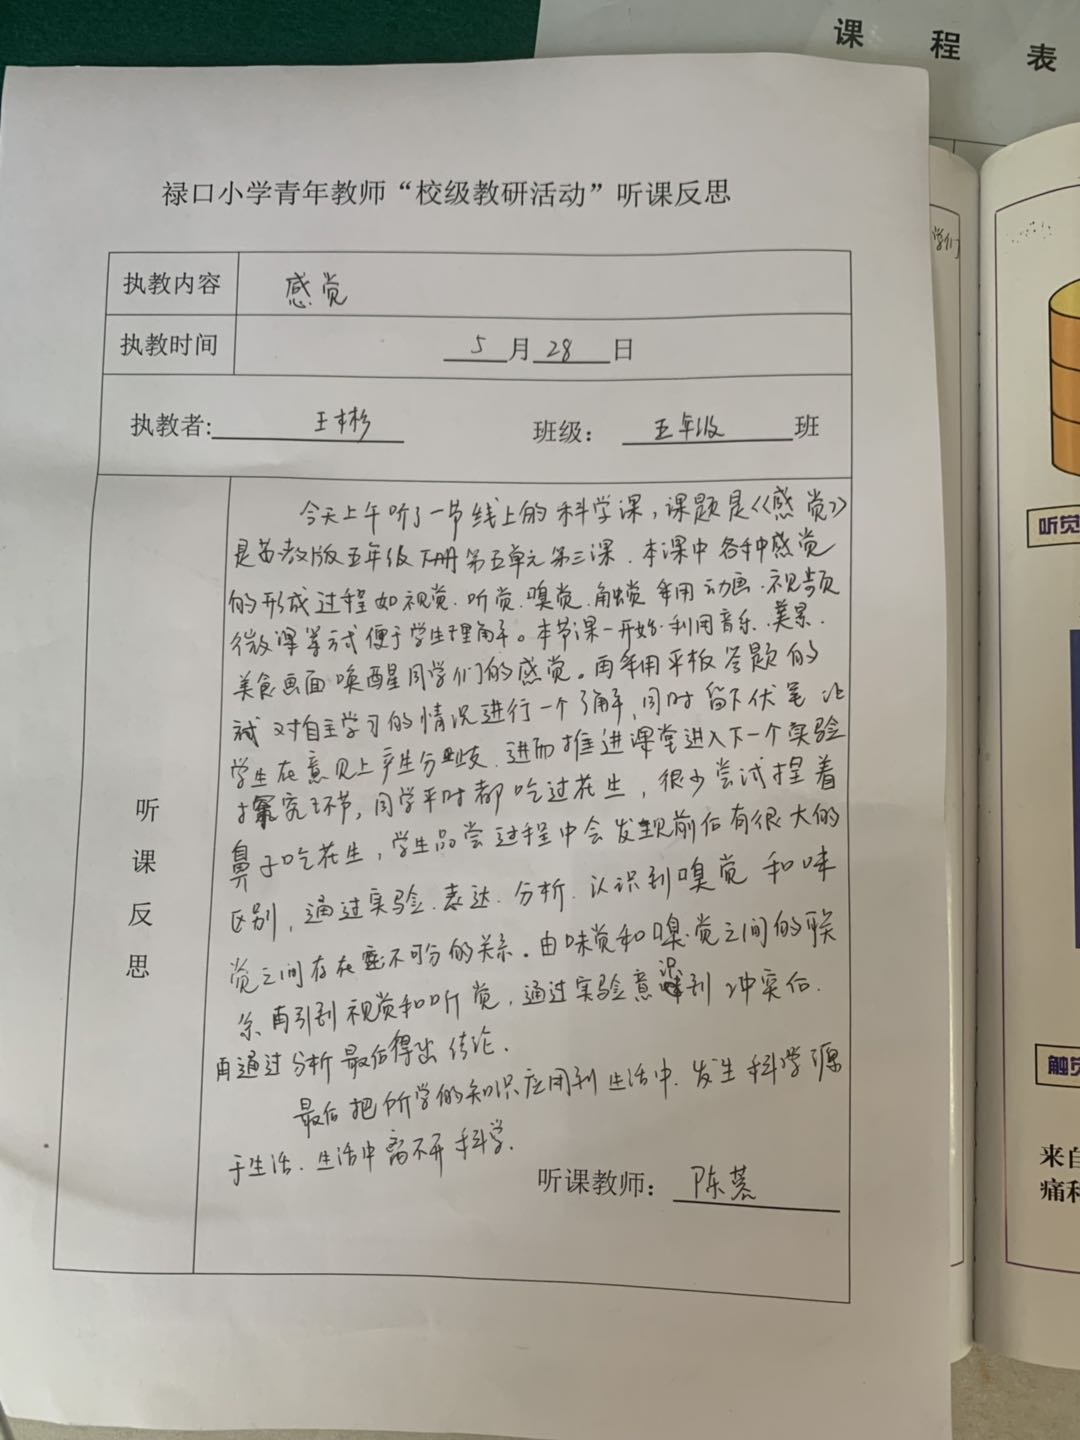 课 程 表
禄口小学青年教师“校级教研活动”听课反思
执教内容 感觉
执教时间 5月28日
执教者: 王彬 班级: 五年级班
听课反思
今天上午听了一节线上的科学课,课题是《感觉》
是苏教版五年级下册第五单元第三课.本课中各种感觉
的形成过程如视觉.听觉.嗅觉.触觉 采用动画.视频
微课等方式便于学生理解。本节课一开始.利用音乐.美景.
美食画面唤醒同学们的感觉。再采用平板答题的
试对自主学习的情况进行一个了解,同时留下伏笔 让
学生在意见上产生分歧.进而推进课堂进入下一个实验
探究环节,同学平时都吃过花生,很少尝试捏着
鼻子吃花生,学生品尝过程中会发现前后有很大的
区别,通过实验.表达.分析.认识到嗅觉和味
觉之间存在密不可分的关系.由味觉和嗅觉之间的联
系 再引到视觉和听觉,通过实验意识到冲突后.
再通过分析最后得出结论.
最后把所学的知识应用到生活中.发生科学源
于生活.生活中离不开科学.
听课教师: 陈慕
学们
听觉
触觉
来自
痛和